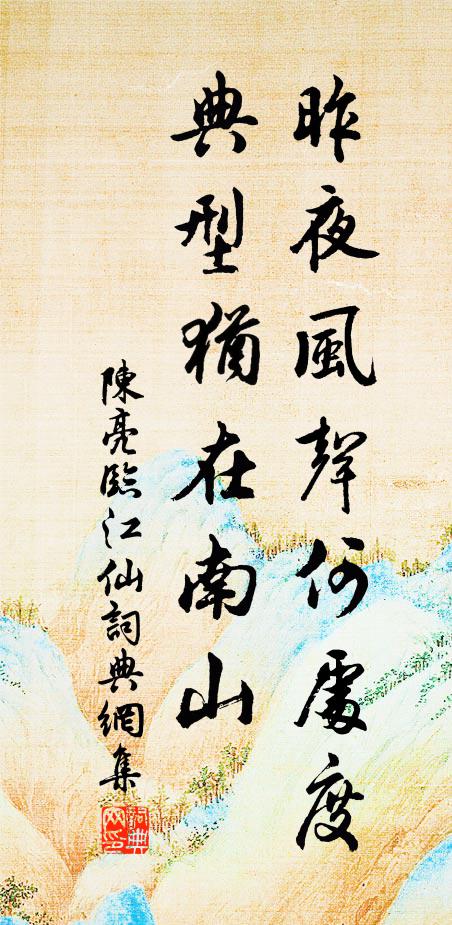 昨夜風聲何處度
典型猶在南山
陳亮臨江仙詞典網集
詞典
網印